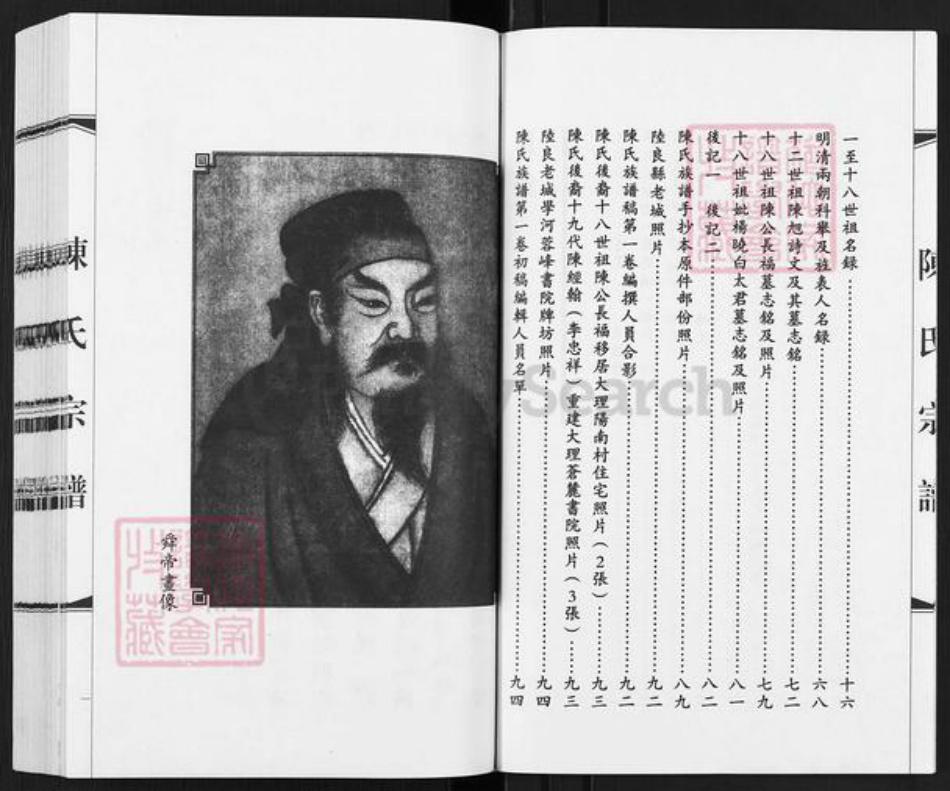 一至十八世祖名錄……十六
明清兩朝科舉及旌表人名錄……六八
十二世祖陳旭詩文及其墓志銘……七二
十八世祖陳公長福墓志銘及照片……七九
十八世祖妣楊曉白太君墓志銘及照片……八一
後記一 後記二……八二
陳氏族譜手抄本原件部份照片……八九
陸良縣老城照片……九二
陳氏族譜稿第一卷編撰人員合影……九二
陳氏後裔十八世祖陳公長福移居大理陽南村住宅照片(2張)……九三
陳氏後裔十九代陳經翰(李忠祥)重建大理蒼麓書院照片(3張)……九三
陸良老城學河蓉峰書院牌坊照片……九四
陳氏族譜第一卷初稿編輯人員名單……九四
陳氏宗譜
舜帝畫像
陳氏宗譜
FamilySearch